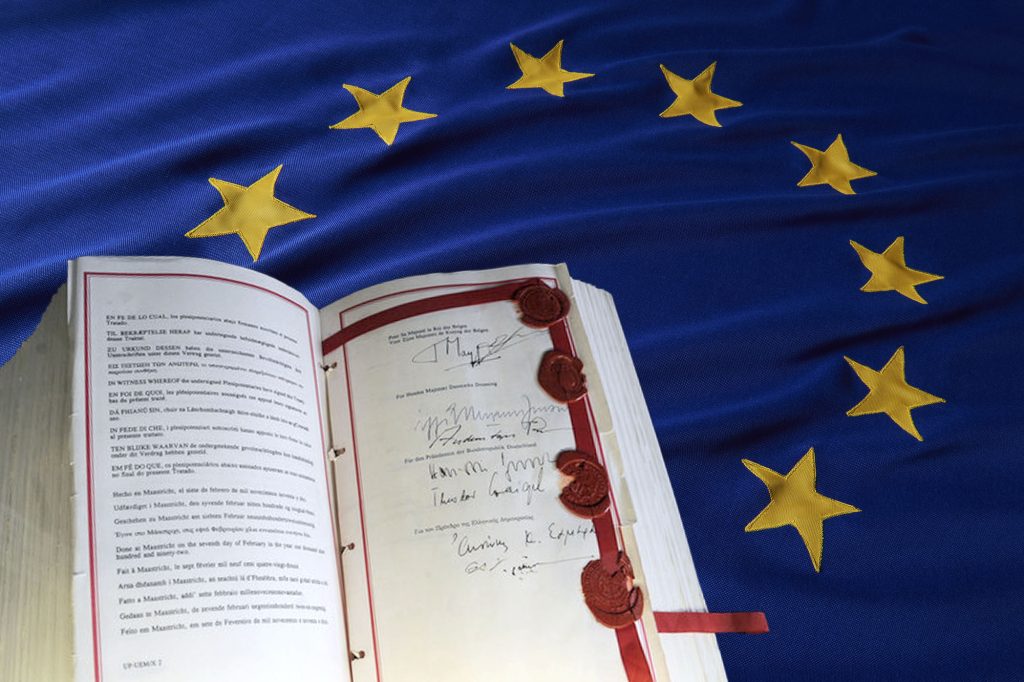 EN FE DE LO CUAL, los plenipotenciarios abajo firmantes suscriben el presente
Tratado.
TIL BEKRÆFTELSE HERAF har undertegnede befuldmægtigede underskrevet
denne Traktat.
ZU URKUND DESSEN haben die unterzeichneten Bevollmächtigten ihre
Unterschriften unter diesen Vertrag gesetzt.
ΕΙΣ ΠΙΣΤΩΣΗ ΤΩΝ ΑΝΩΤΕΡΩ, οι υπογεγραμμένοι πληρεξούσιοι
παρούσα συνθήκη.
IN WITNESS WHEREOF the undersigned Plenipotentiaries have signed this Treaty.
EN FOI DE QUOI, les plénipotentiaires soussignés ont apposé leurs signatures au
bas du présent traité.
DÁ FHIANÚ SIN, chuir na Lánchumhachtaigh thíos-sínithe a lámh leis an
seo.
IN FEDE DI CHE, i plenipotenziari sottoscritti hanno apposto le loro firme in calce
al presente trattato.
TEN BLIJKE WAARVAN de ondergetekende gevolmachtigden hun handtekening
onder dit Verdrag hebben gesteld.
EM FÉ DO QUE, os plenipotenciários abaixo assinados apuseram as suas assinaturas
no final do presente Tratado.
Hecho en Maastricht, el siete de febrero de mil novecientos noventa y dos.
Udfærdiget i Maastricht, den syvende februar nitten hundrede og
Geschehen zu Maastricht am siebten Februar
Έγινε στο Μάαστριχτ, στις εφτά Φεβρουαρίου χίλια εννιακόσια ενενήντα δύο.
Done at Maastricht on the seventh day of February in the year one thousand nine
hundred and ninety-two.
Fait à Maastricht, le sept février mil neuf cent quatre-vingt-douze.
Arna dhéanamh i Maastricht, an seachtú lá d'Fheabhra, míle naoi gcéad
Fatto a Maastricht, addi' sette febbraio millenovecentonovantadue.
Gedaan te Maastricht, de zevende februari negentienhonderd
Feito em Maastricht, em sete de Fevereiro de mil novecentos e noventa e dois.
UP-UEM/X 2
Pour Sa Majesté le Roi des Belges
Voor Zijne Majesteit de Koning der Belgen
For Hendes Majestæt Danmarks Dronning
Für den Präsidenten der Bundesrepublik Deutschland
Theodor Waigel
Για τον Πρόεδρο της Ελληνικής Δημοκρατίας